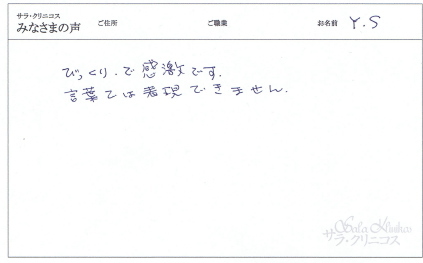 サラ・クリニコス
みなさまの声 ご住所 ご職業 お名前 Y.S
びっくり.で感激です.
言葉では表現できません.
Sala Klinikos
サラ・クリニコス